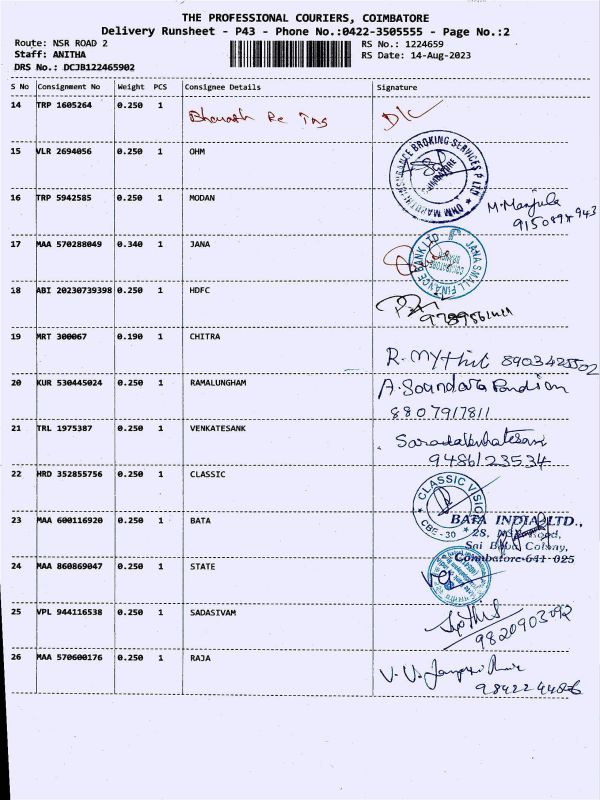 THE PROFESSIONAL COURIERS, COIMBATORE
Delivery Runsheet - P43 - Phone No.:0422-3505555 - Page No.:2
Route: NSR ROAD 2
Staff: ANITHA
DRS No.: DCJB122465902
RS No.: 1224659
RS Date: 14-Aug-2023
S No Consignment No Weight PCS Consignee Details Signature
14 TRP 1605264 0.250 1
15 VLR 2694056 0.250 1 OHM
16 TRP 5942585 0.250 1 MODAN
M. Manjula
17 MAA 570288049 0.340 1 JANA
JANA SMALL FINANCE BANK LTD
COIMBATORE
BRANCH
18 ABI 20230739398 0.250 1 HDFC
19 MRT 300067 0.190 1 CHITRA
8903425502
20 KUR 530445024 0.250 1 RAMALUNGHAM
A. Soundara Pandian
8807917811
21 TRL 1975387 0.250 1 VENKATESANK
9486123534
22 HRD 352855756 0.250 1 CLASSIC
CLASSIC VISION
CBE - 30
23 MAA 600116920 0.250 1 BATA
BATA INDIA LTD.,
28, NSR Road,
Sai Baba Colony,
Coimbatore-641 025
24 MAA 860869047 0.250 1 STATE
25 VPL 944116538 0.250 1 SADASIVAM
9820903092
26 MAA 570600176 0.250 1 RAJA